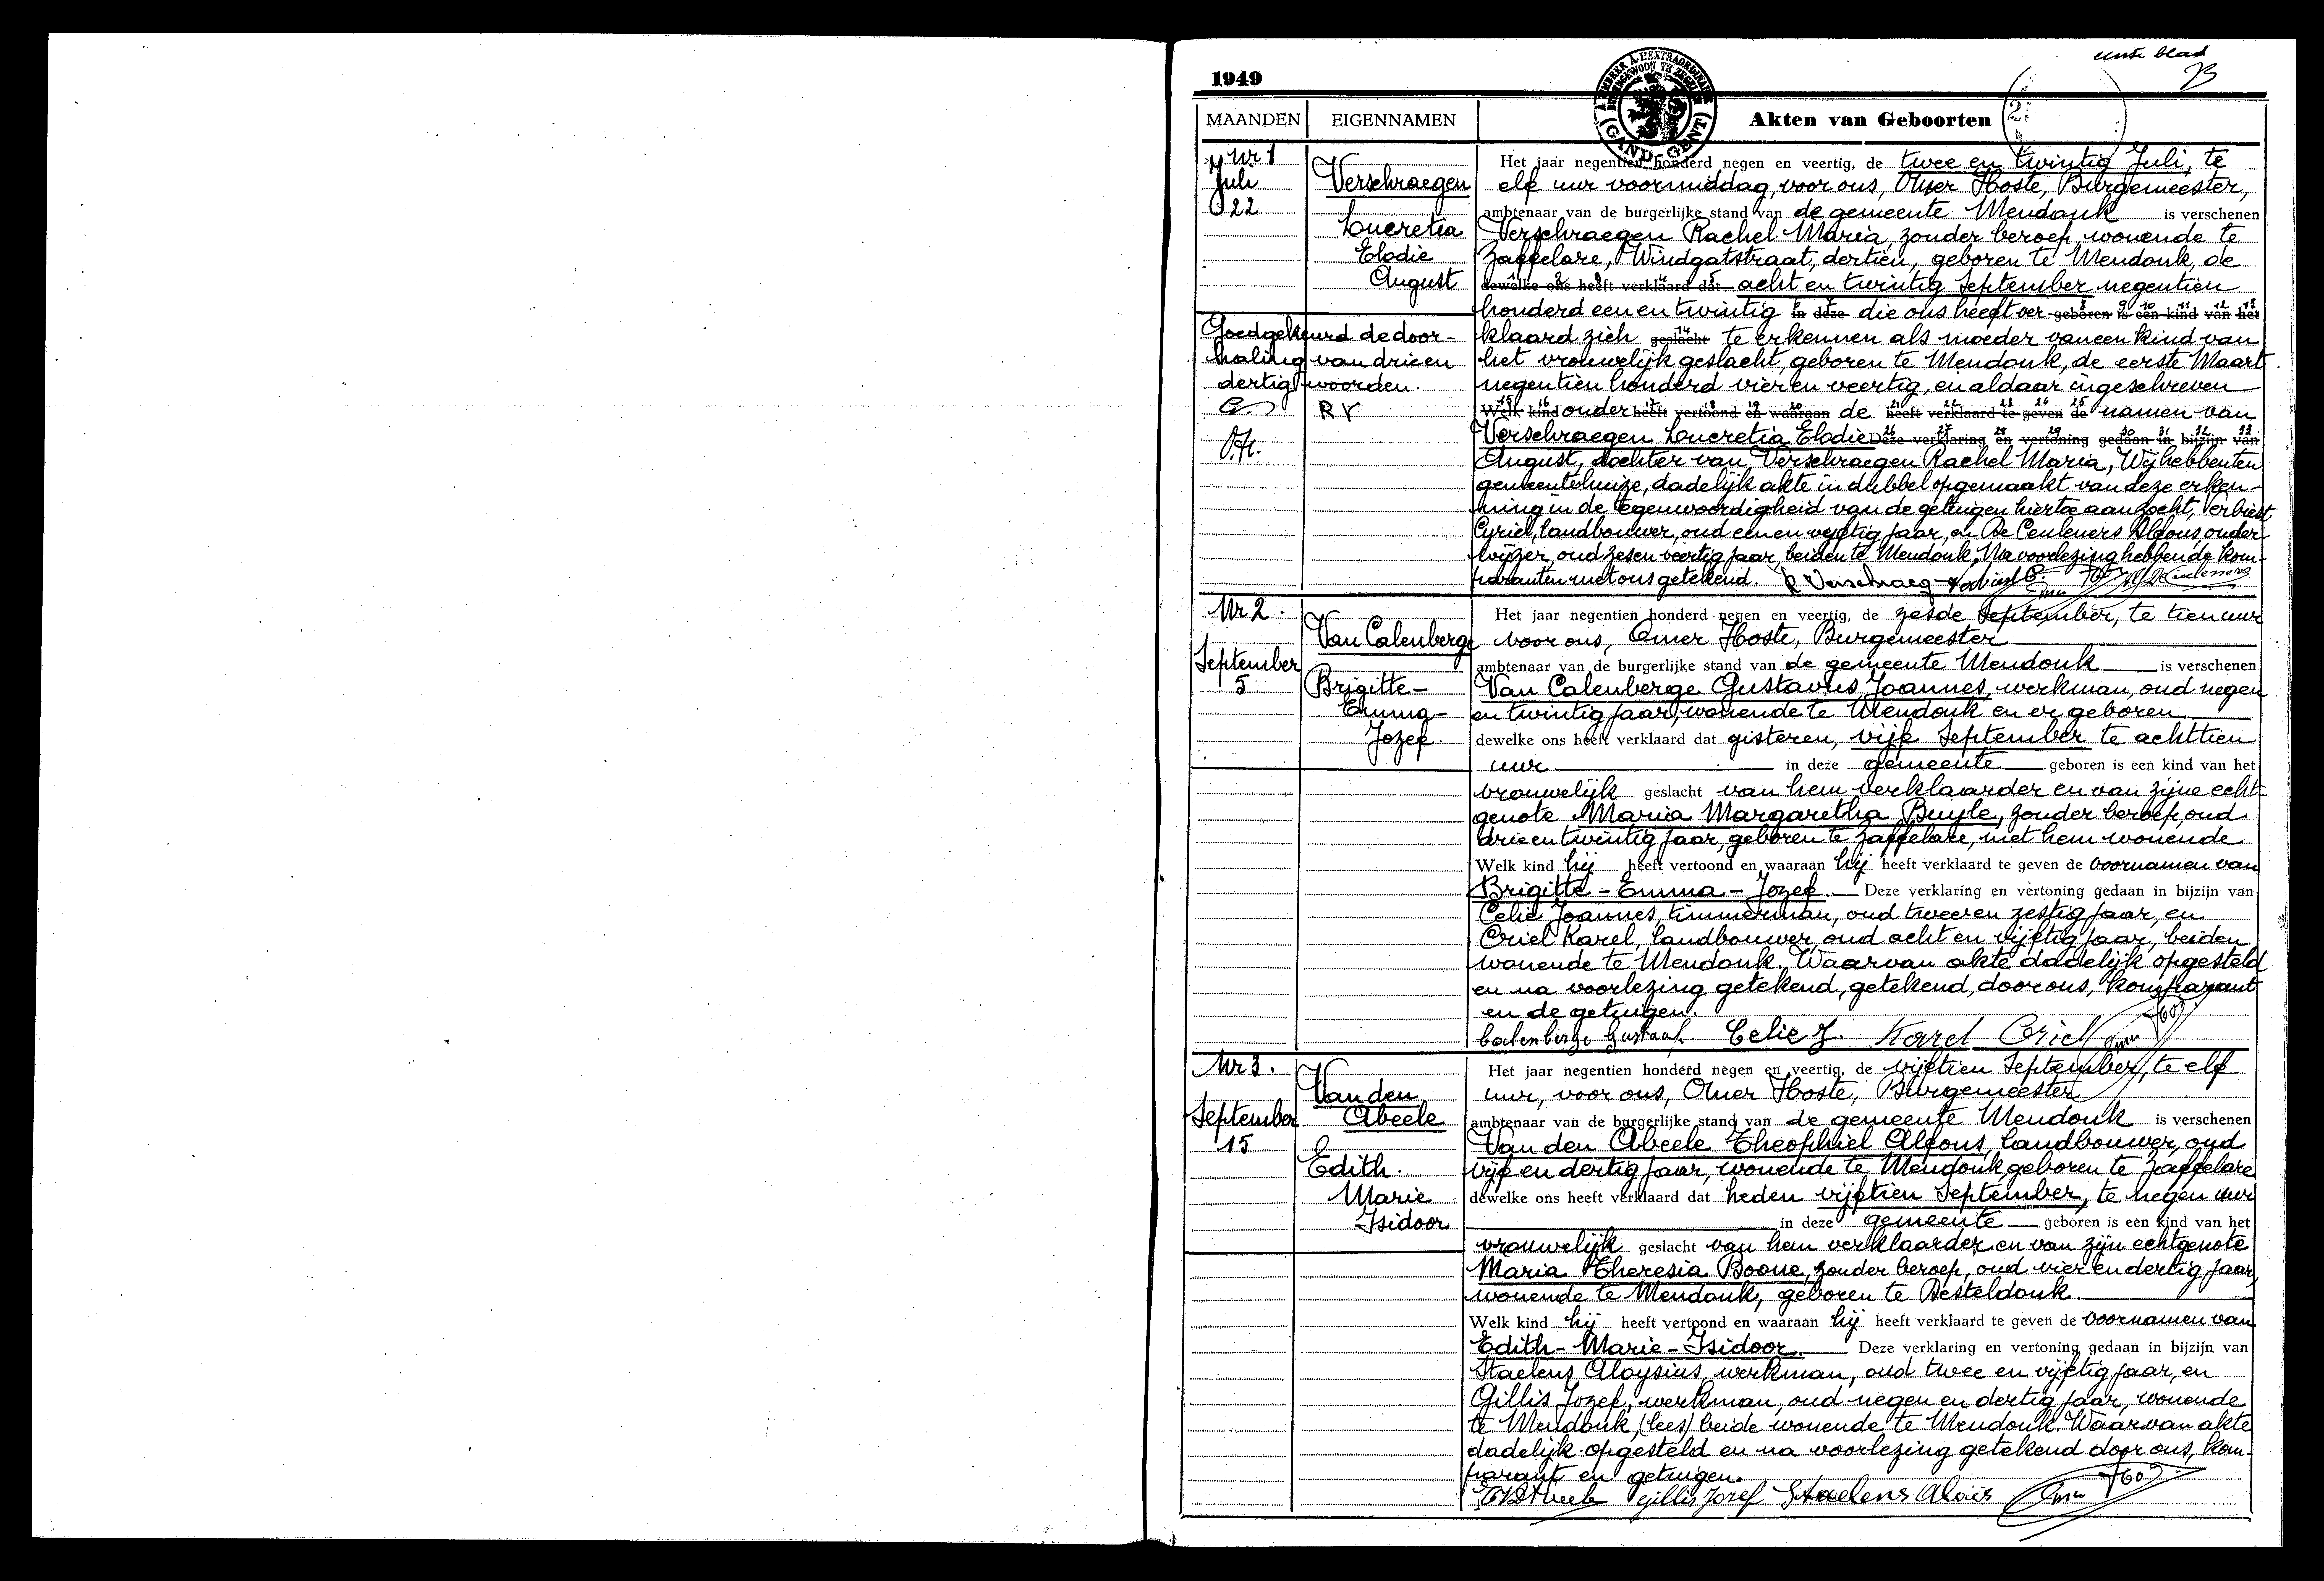 eerste blad
1949
TIMBRER A L'EXTRAORDINAIRE
BUITENGEWOON TE ZEGELEN
(GAND-GENT)
MAANDEN EIGENNAMEN Akten van Geboorten
Nr 1
Juli
22
Verschraegen
Lucretia
Elodie
August
Goedgekeurd de door-
haling van drie en
dertig woorden.
R V
O.H.
Het jaar negentien honderd negen en veertig, de twee en twintig Juli, te
elf uur voormiddag, voor ons, Omer Hoste, Burgemeester,
ambtenaar van de burgerlijke stand van de gemeente Mendonk is verschenen
Verschraegen Rachel Maria, zonder beroep, wonende te
Zaffelare, Windgatstraat, dertien, geboren te Mendonk, de
dewelke ons heeft verklaard dat acht en twintig September negentien
honderd een en twintig in deze die ons heeft ver- geboren is een kind van het
klaard zich geslacht te erkennen als moeder van een kind van
het vrouwelijk geslacht, geboren te Mendonk, de eerste Maart
negentien honderd vier en veertig, en aldaar ingeschreven
Welk kind onder heeft vertoond en waaraan de heeft verklaard te geven de namen van
Verschraegen Lucretia Elodie Deze verklaring en vertoning gedaan in bijzijn van
August, dochter van Verschraegen Rachel Maria, Wij hebben ten
gemeentehuize, dadelijk akte in dubbel opgemaakt van deze erken-
ning in de tegenwoordigheid van de getuigen hiertoe aanzocht, Verbiest
Cyriel, landbouwer, oud een en vijftig jaar, en De Ceuleners Alfons onder-
wijzer, oud zes en veertig jaar, beiden te Mendonk. Na voorlezing hebben de kom-
paranten met ons getekend. R Verschraeg Verbiest C.
Nr 2.
September
5
Van Calenberge
Brigitte-
Emma-
Jozef.
Het jaar negentien honderd negen en veertig, de zesde September, te tien uur
voor ons, Omer Hoste, Burgemeester
ambtenaar van de burgerlijke stand van de gemeente Mendonk is verschenen
Van Calenberge Gustavus Joannes, werkman, oud negen
en twintig jaar, wonende te Mendonk en er geboren
dewelke ons heeft verklaard dat gisteren, vijf September te achttien
uur in deze gemeente geboren is een kind van het
vrouwelijk geslacht van hem verklaarder en van zijne echt-
genote Maria Margaretha Buyle, zonder beroep, oud
drie en twintig jaar, geboren te Zaffelare, met hem wonende
Welk kind hij heeft vertoond en waaraan hij heeft verklaard te geven de voornamen van
Brigitte - Emma - Jozef. Deze verklaring en vertoning gedaan in bijzijn van
Celie Joannes, timmerman, oud twee en zestig jaar, en
Criel Karel, landbouwer, oud acht en vijftig jaar, beiden
wonende te Mendonk. Waarvan akte dadelijk opgesteld
en na voorlezing getekend, getekend, door ons, komparant
en de getuigen.
Calenberge Gustaaf. Celie J. Karel Criel
Nr 3.
September
15
Van den
Abeele
Edith.
Marie
Isidoor
Het jaar negentien honderd negen en veertig, de vijftien September, te elf
uur, voor ons, Omer Hoste, Burgemeester
ambtenaar van de burgerlijke stand van de gemeente Mendonk is verschenen
Van den Abeele Theophiel Alfons, landbouwer, oud
vijf en dertig jaar, wonende te Mendonk, geboren te Zaffelare
dewelke ons heeft verklaard dat heden vijftien September, te negen uur
in deze gemeente geboren is een kind van het
vrouwelijk geslacht van hem verklaarder en van zijn echtgenote
Maria Theresia Boone, zonder beroep, oud vier en dertig jaar,
wonende te Mendonk, geboren te Desteldonk.
Welk kind hij heeft vertoond en waaraan hij heeft verklaard te geven de voornamen van
Edith - Marie - Isidoor. Deze verklaring en vertoning gedaan in bijzijn van
Staelens Aloysius, werkman, oud twee en vijftig jaar, en
Gillis Jozef, werkman, oud negen en dertig jaar, wonende
te Mendonk, (lees) beide wonende te Mendonk. Waarvan akte
dadelijk opgesteld en na voorlezing getekend door ons, kom-
parant en getuigen.
Gillis Jozef Staelens Aloïs